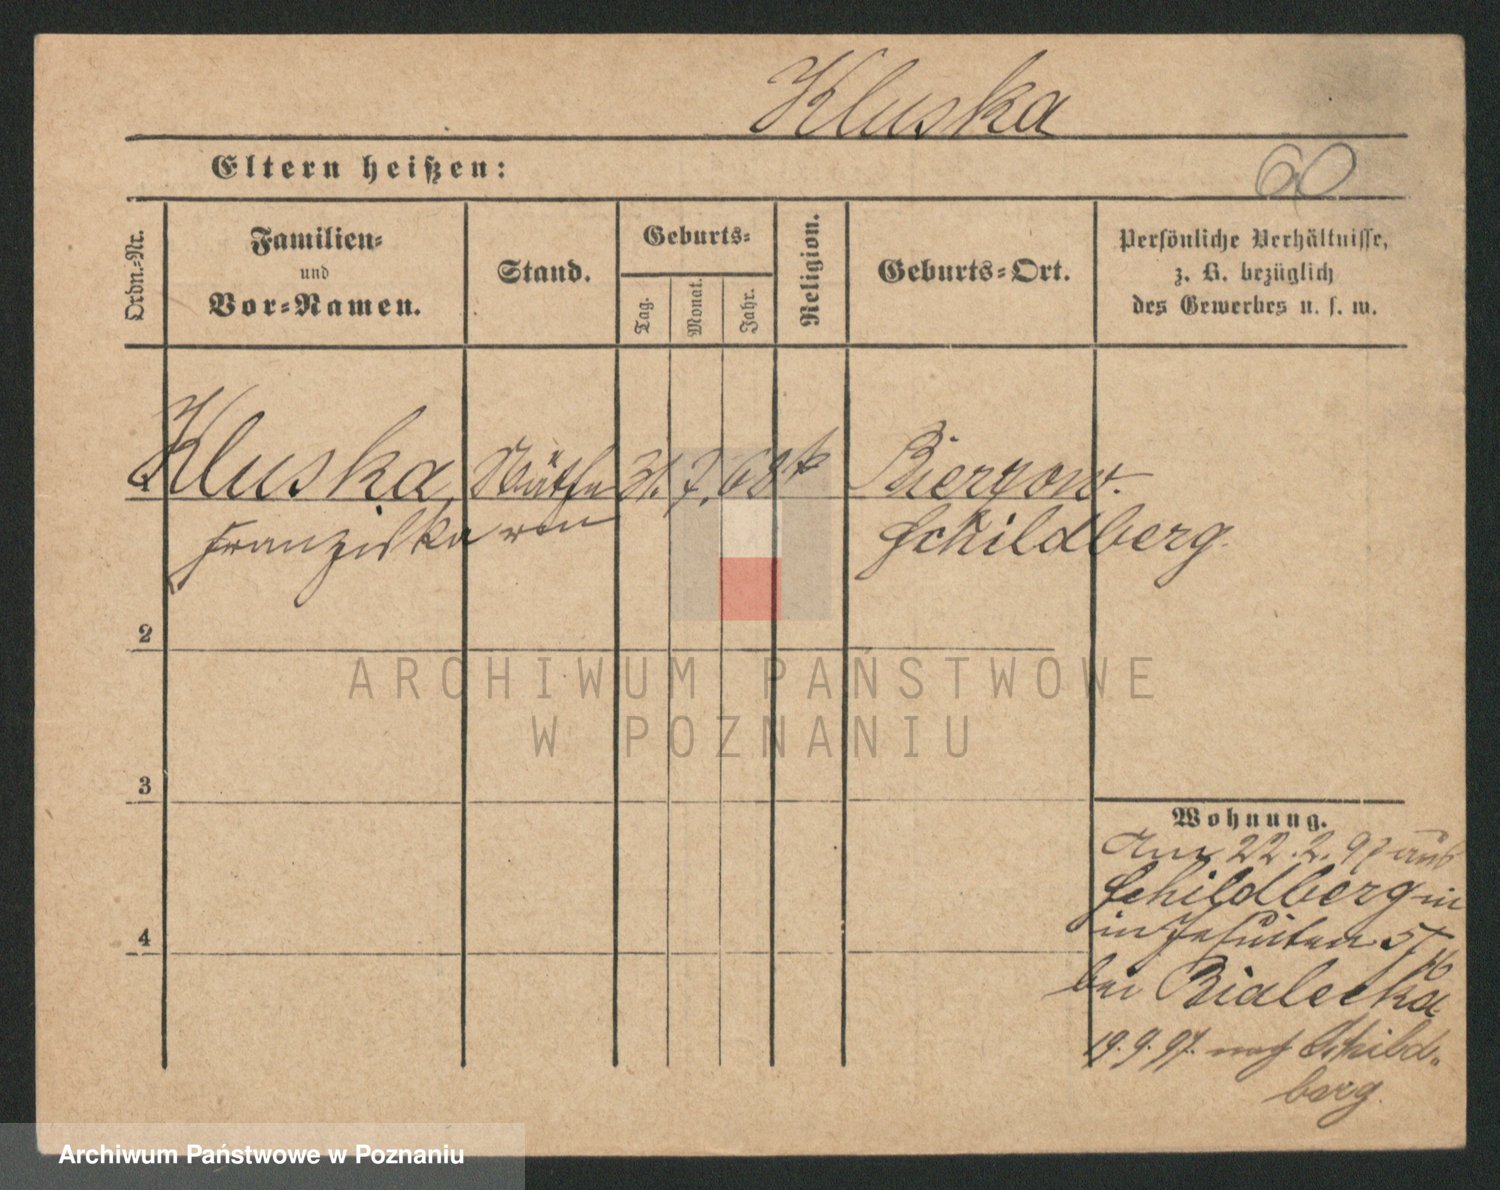 Kluska
Eltern heißen:
60
Ordn.-Nr.
Familien-
und
Vor-Namen.
Stand.
Geburts-
Tag.
Monat.
Jahr.
Religion.
Geburts-Ort.
Persönliche Verhältnisse,
z. B. bezüglich
des Gewerbes u. s. w.
1
Kluska, 31. 7. 68 k
Franziska
Schildberg.
2
ARCHIWUM PAŃSTWOWE
W POZNANIU
3
Wohnung.
Am 22.2.97 aus
Schildberg
in Jesuiten 5
4
bei Bialecka
19.9.97. nach Schild-
berg.
Archiwum Państwowe w Poznaniu